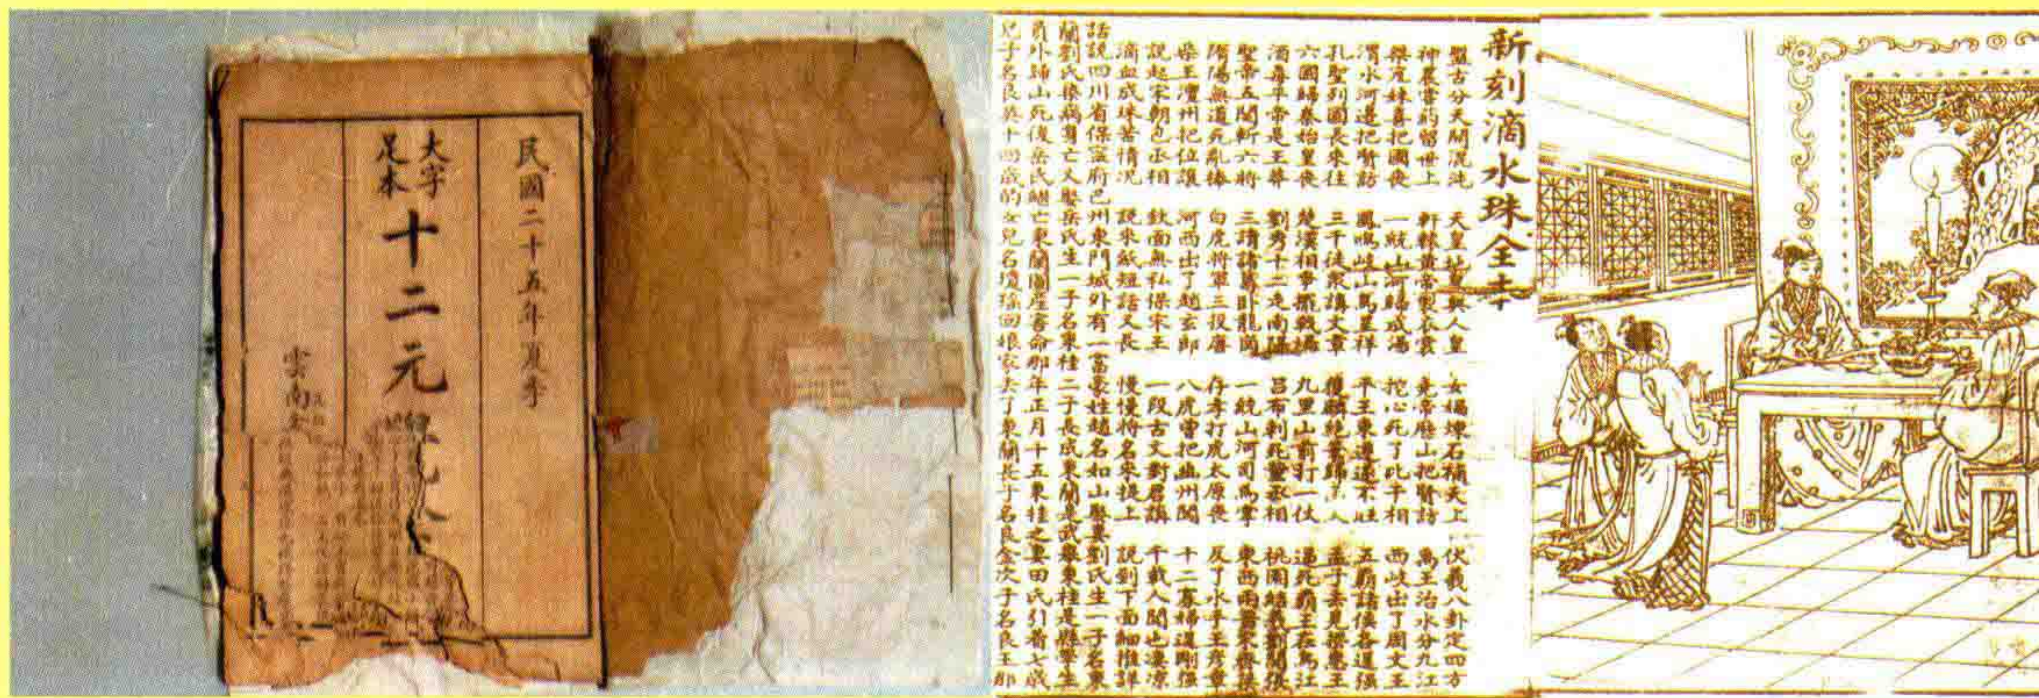 民國二十五年夏季
大字
足本
十二元
雲南
新刻滴水珠全本
盤古分天開混沌 天皇地皇與人皇 女媧煉石補天上 伏羲八卦定四方
神農嘗藥留世上 軒轅黃帝製衣裳 堯帝歷山把賢訪 禹王治水分九江
桀寵妹喜把國喪 一統山河歸成湯 挖心死了比干相 西岐出了周文王
渭水河邊把賢訪 鳳鳴岐山為呈祥 平王東遷遭不旺 五霸諸侯各逞强
孔聖列國長來往 三千徒衆講文章 獲麟絕筆歸人 孟子去見梁惠王
六國歸秦始皇喪 楚漢相爭擺戰場 九里山前打一仗 逼死霸王在烏江
酒毒平帝是王莽 劉秀十二走南陽 呂布刺死董丞相 桃園結義劉關張
聖帝五關斬六將 三請諸葛卧龍崗 一統山河司馬掌 東西兩晉宋齊梁
隋陽無道死亂棒 白虎將軍三投唐 存孝打虎太原喪 反了水手王彦章
柴王澶州把位讓 河西出了趙玄郎 八虎曾把幽州闖 十二寡婦逞剛强
說起宋朝包丞相 鉄面無私保宋王 一段古文對君講 千載人間也淒凉
滴血成珠苦情況 說來紙短話又長 慢慢將名來提上 說到下面細推詳
話說四川省保府巴州東門城外有一富豪姓趙名如山娶妻劉氏生一子名東
蘭劉氏病身亡又娶岳氏生一子名東桂二子長成東蘭是武舉東桂是縣學生
員外歸山死後岳氏繼亡東蘭產喪命那年正月十五東桂之妻田氏引着七歲
兒子名良英十四歲的女兒名瓊瑤回娘家去了東蘭長子名良金次子名良玉那